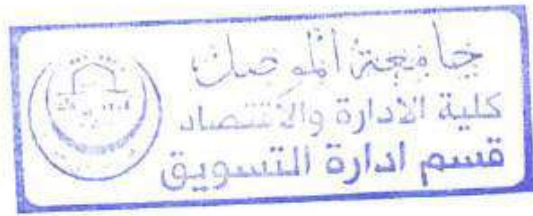 جامعة الموصل
كلية الادارة والاقتصاد
قسم ادارة التسويق